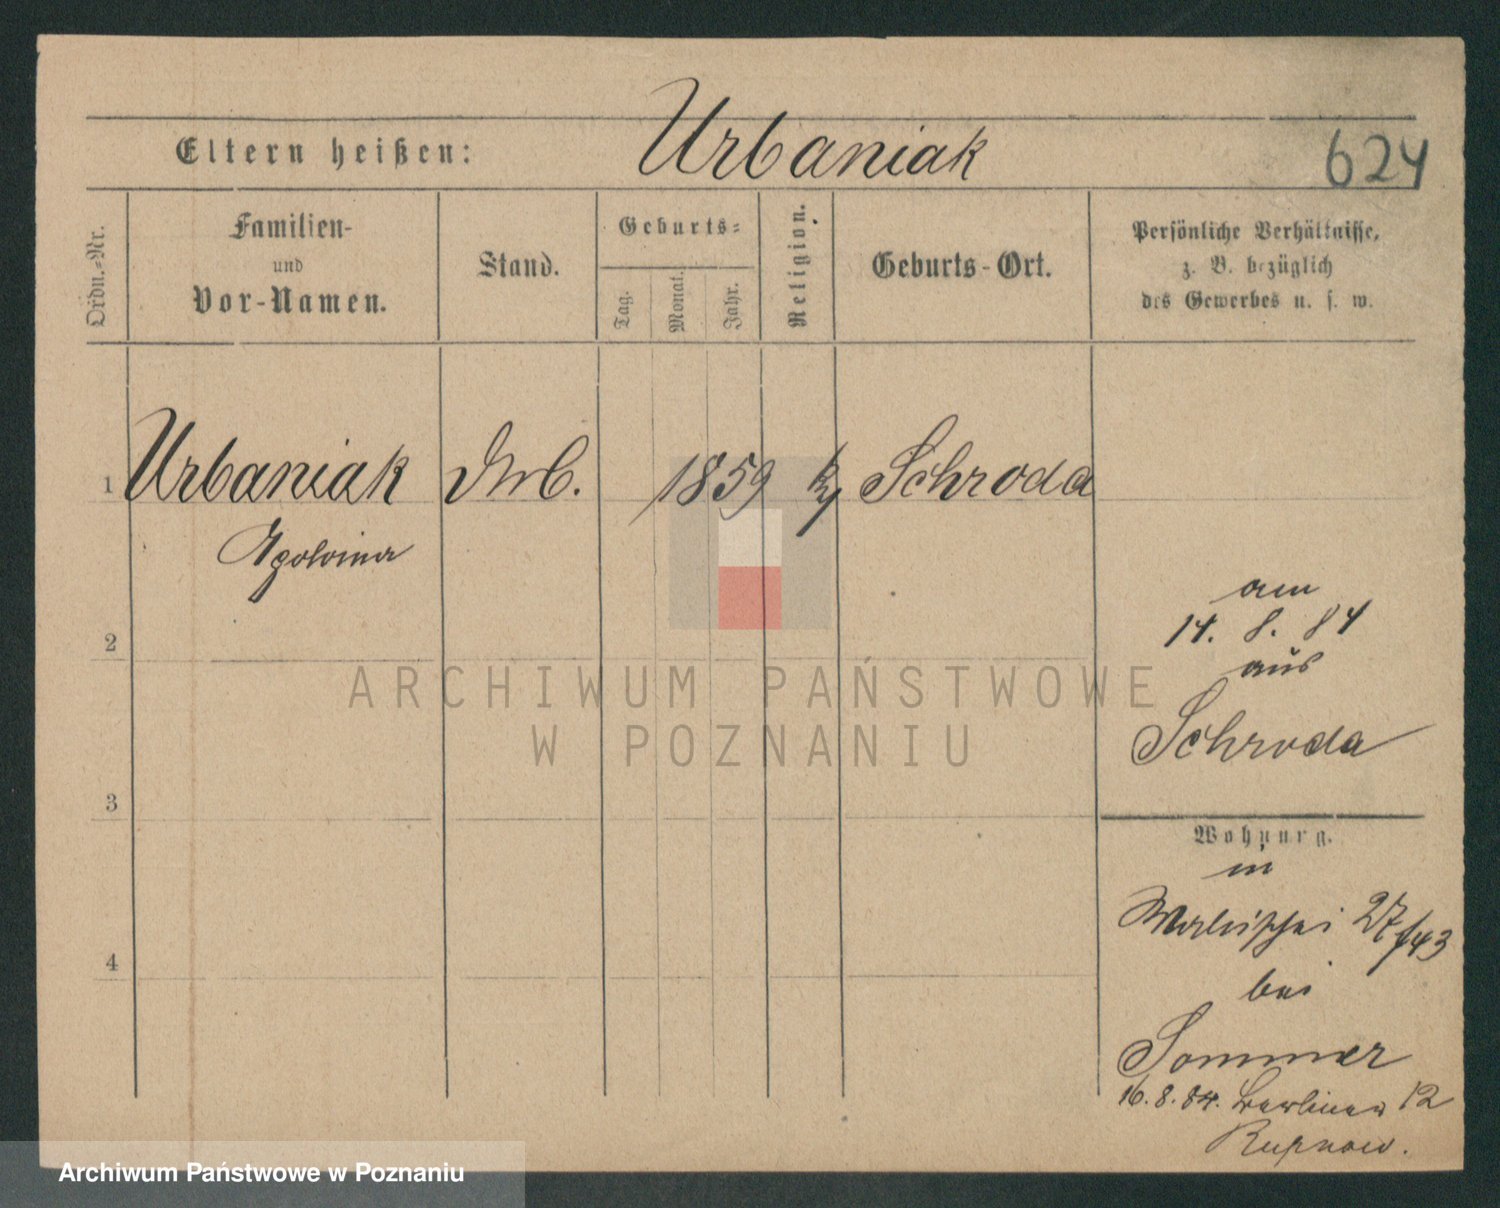 Eltern heißen: Urbaniak 624
Ordn.-Nr.
Familien-
und
Vor-Namen.
Stand.
Geburts-
Tag.
Monat.
Jahr.
Religion.
Geburts-Ort.
Persönliche Verhältnisse,
z. B. bezüglich
des Gewerbes u. s. w.
1 Urbaniak 1859 Schroda
am
2 14. 8. 84
aus
ARCHIWUM PAŃSTWOWE
W POZNANIU
Schroda
3
Wohnung.
in
Wallischei 27/43
4
bei
Sommer
16. 8. 84. Berliner 12
Archiwum Państwowe w Poznaniu